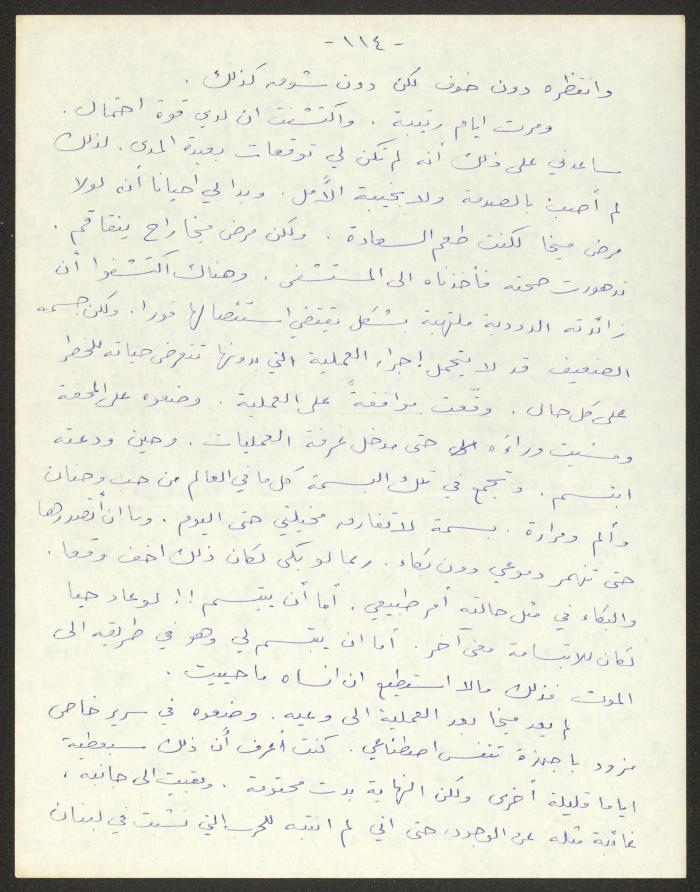 - ١١٤ -
وانتظره دون خوف لكن دون شوق كذلك .
ومرت ايام رتيبة . واكتشفت ان لدي قوة احتمال .
ساعدني على ذلك أنه لم تكن لي توقعات بعيدة المدى . لذلك
لم أصب بالصدمة ولا بخيبة الأمل . وبدا لي احيانا أنه لولا
مرض ميخا لكنت طعم السعادة . ولكن مرض ميخا راح يتفاقم .
تدهورت صحته فأخذناه الى المستشفى . وهناك اكتشفوا أن
زائدته الدودية ملتهبة بشكل يقتضي استئصالها فورا . ولكن جسمه
الضعيف قد لا يتحمل إجراء العملية التي بدونها تتعرض حياته للخطر
على كل حال . وقّعت موافقةً على العملية . وضعوه على المحفة
ومشيت وراءه حتى مدخل غرفة العمليات . وحين ودعته
ابتسم . وتجمع في تلك البسمة كل ما في العالم من حب وحنان
وألم ومرارة . بسمة لا تفارق مخيلتي حتى اليوم . وما ان أتصورها
حتى تنهمر دموعي دون بكاء . ربما لو بكى لكان ذلك اخف وقعا .
والبكاء في مثل حالته أمر طبيعي . أما أن يبتسم !! لو عاد حيا
لكان للابتسامة معنى آخر . أما ان يبتسم لي وهو في طريقه الى
الموت فذلك ما لا استطيع ان انساه ما حييت .
لم يعد ميخا بعد العملية الى وعيه . وضعوه في سرير خاص
مزود باجهزة تنفس اصطناعي . كنت أعرف أن ذلك سيعطيه
اياما قليلة أخرى ولكن النهاية بدت محتومة . وبقيت الى جانبه ،
غائبة مثله عن الوجود ، حتى اني لم انتبه للحرب التي نشبت في لبنان